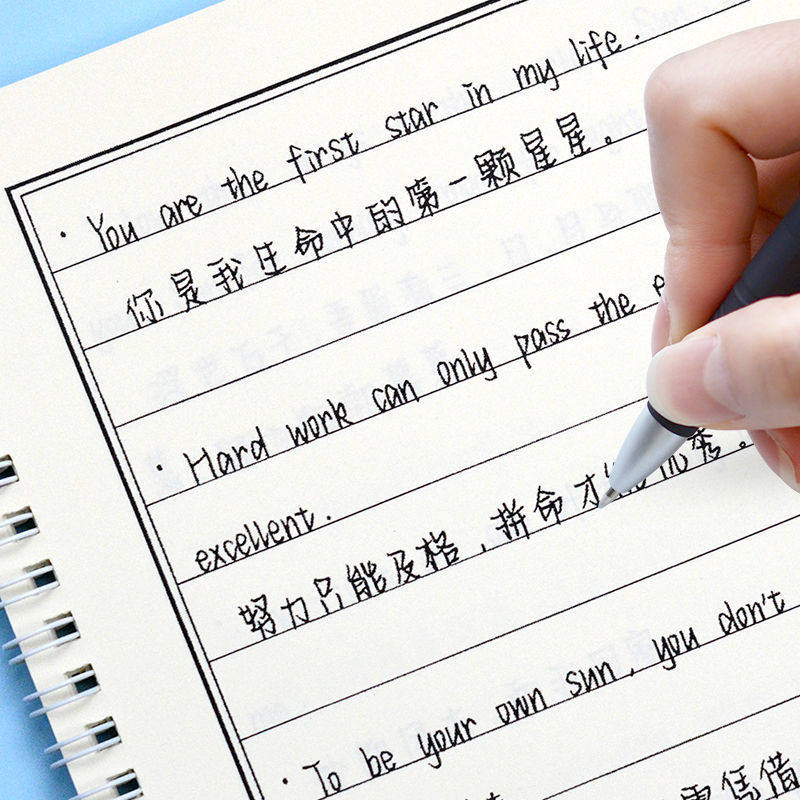 · You are the first star in my life.
你是我生命中的第一颗星星。
· Hard work can only pass the
excellent.
努力只能及格，拼命才 优秀。
· To be your own sun, you don't
需凭借